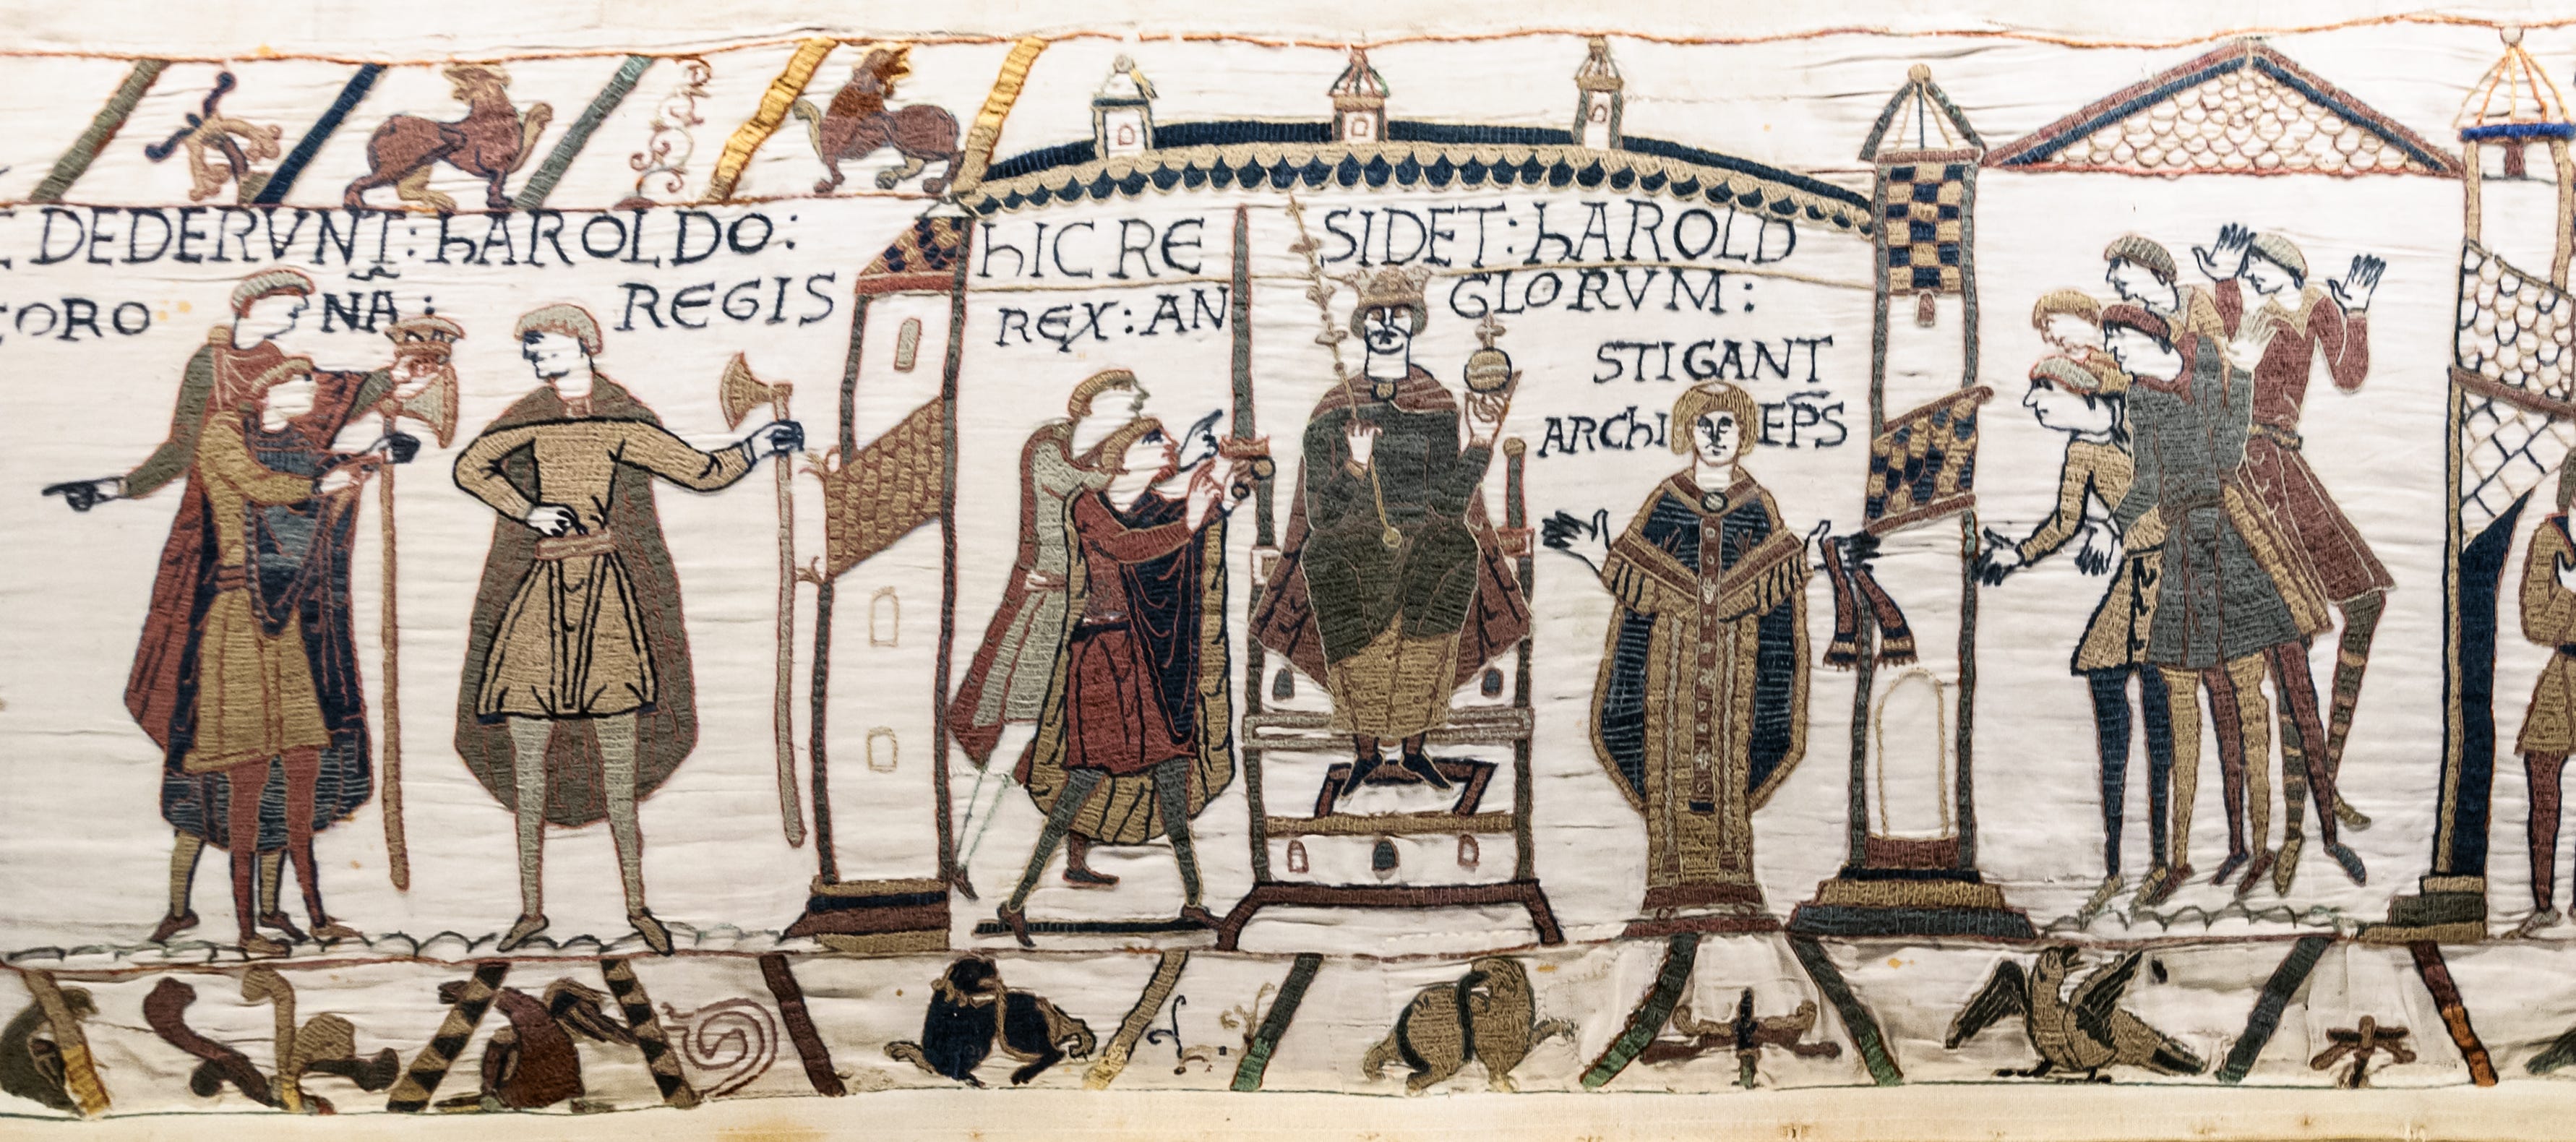 DEDERVNT : hAROLDO :
CORONÃ : REGIS
hIC RESIDET : hAROLD
REX : ANGLORVM :
STIGANT
ARChIEP̄S